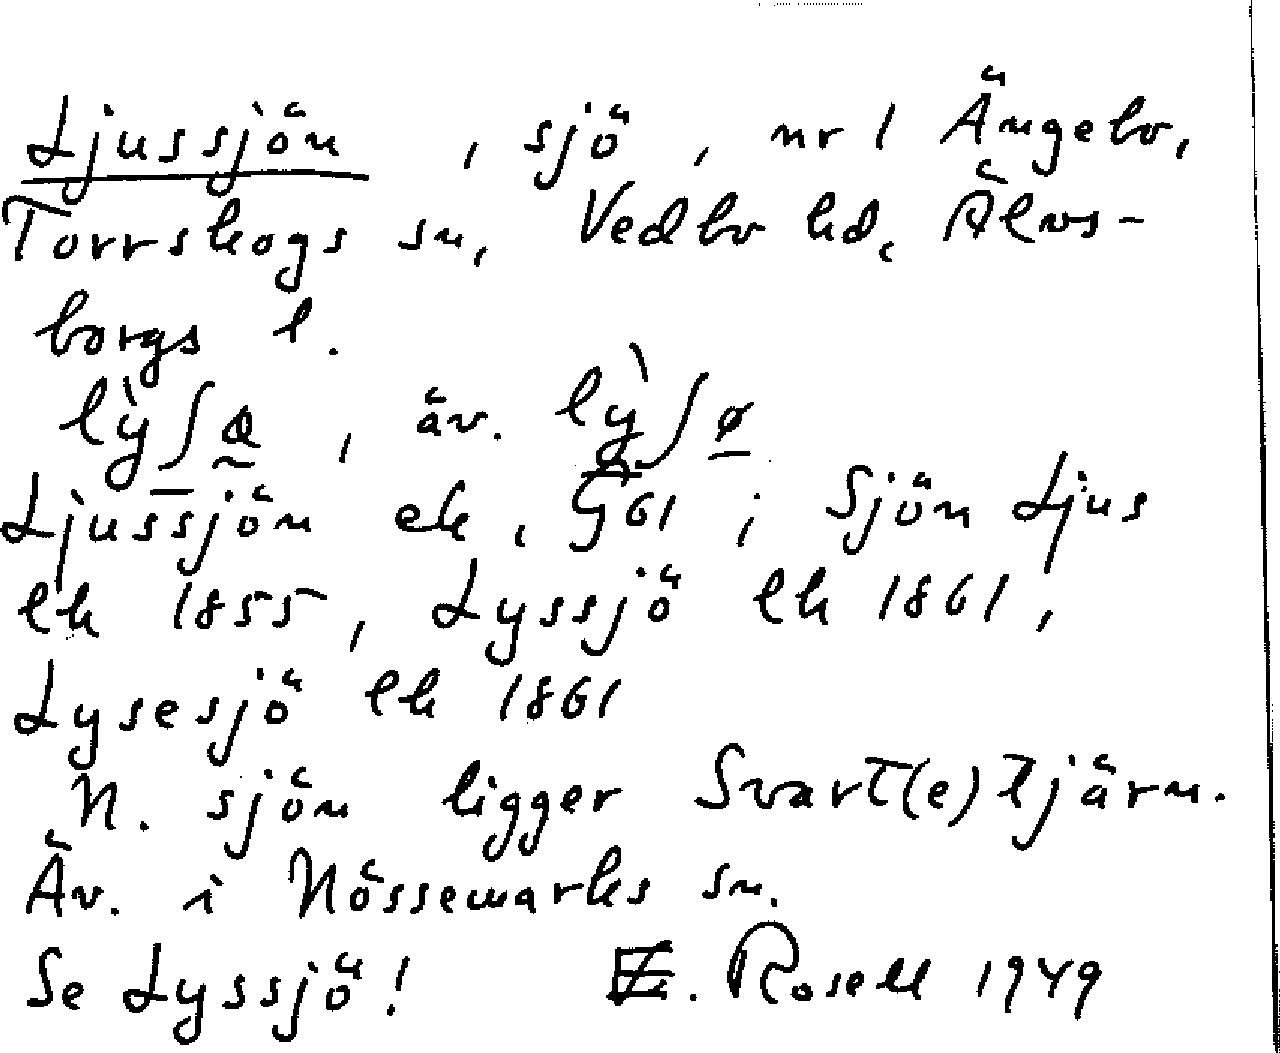 Ljussjön, sjö, nr 1 Ängebo,
Torrskogs sn, Vedbo hd, Älvs-
borgs l.
Ljussjön ek, G61; Sjön Ljus
lh 1855, Lyssjö lh 1861,
Lysesjö lh 1861
N. sjön ligger Svart(e)tjärn.
Äv. i Nössemarks sn.
Se Lyssjö! E. Rosell 1949